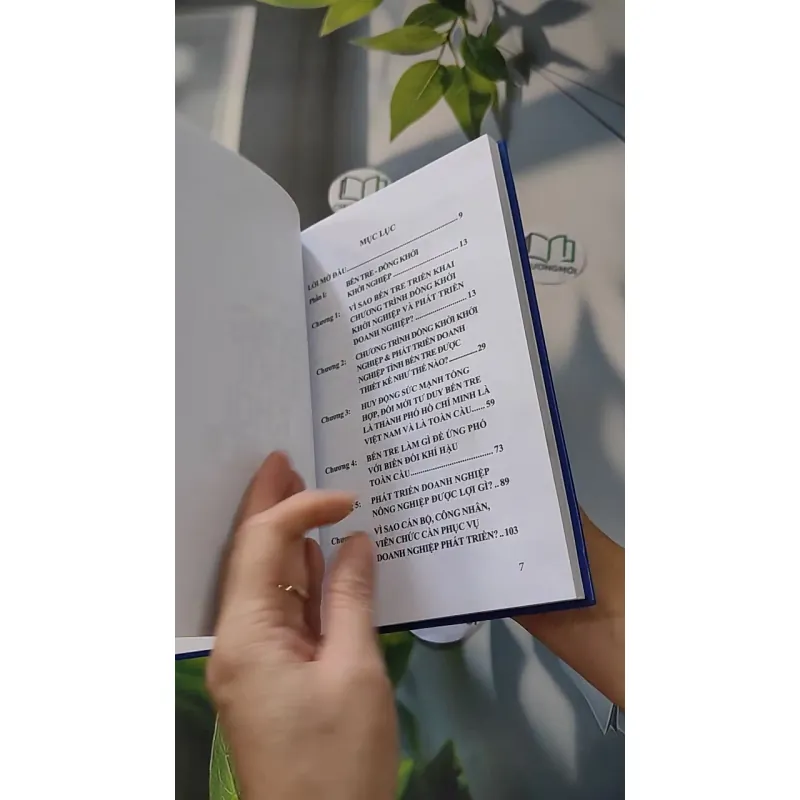 MỤC LỤC
LỜI MỞ ĐẦU..........................................9
Phần I: BẾN TRE - ĐỒNG KHỞI
KHỞI NGHIỆP ......................13
Chương 1: VÌ SAO BẾN TRE TRIỂN KHAI
CHƯƠNG TRÌNH ĐỒNG KHỞI
KHỞI NGHIỆP VÀ PHÁT TRIỂN
DOANH NGHIỆP? ..................13
Chương 2: CHƯƠNG TRÌNH ĐỒNG KHỞI KHỞI
NGHIỆP & PHÁT TRIỂN DOANH
NGHIỆP TỈNH BẾN TRE ĐƯỢC
THIẾT KẾ NHƯ THẾ NÀO?..........29
Chương 3: HUY ĐỘNG SỨC MẠNH TỔNG
HỢP, ĐỔI MỚI TƯ DUY BẾN TRE
LÀ THÀNH PHỐ HỒ CHÍ MINH LÀ
VIỆT NAM VÀ LÀ TOÀN CẦU......59
Chương 4: BẾN TRE LÀM GÌ ĐỂ ỨNG PHÓ
VỚI BIẾN ĐỔI KHÍ HẬU
TOÀN CẦU..............................73
5: PHÁT TRIỂN DOANH NGHIỆP
NÔNG NGHIỆP ĐƯỢC LỢI GÌ? ..89
VÌ SAO CÁN BỘ, CÔNG NHÂN,
VIÊN CHỨC CẦN PHỤC VỤ
DOANH NGHIỆP PHÁT TRIỂN? ..103
7